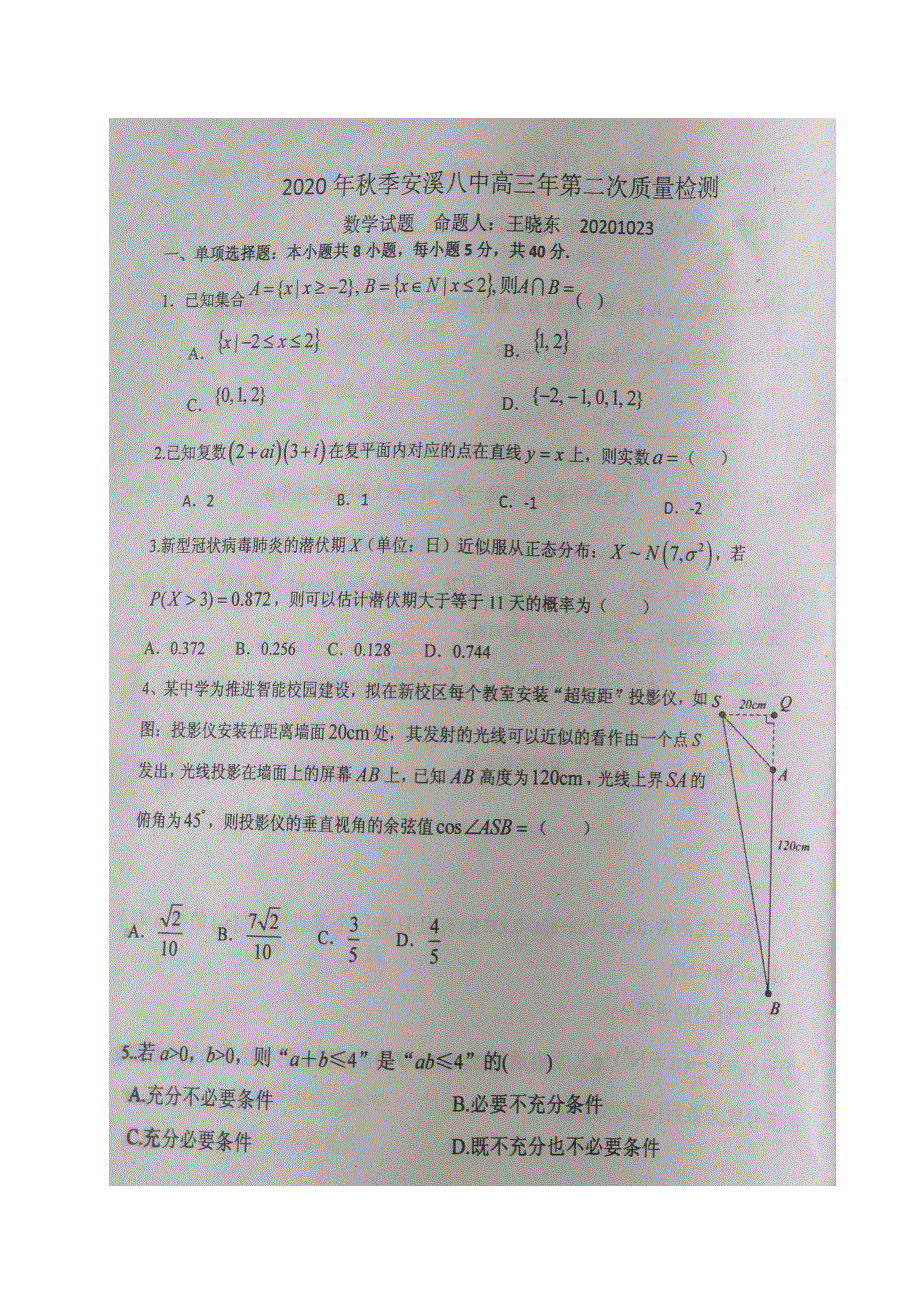 2020 年秋季安溪八中高三年第二次质量检测
数学试题 命题人：王晓东 20201023
一、单项选择题：本小题共 8 小题，每小题 5 分，共 40 分.
1. 已知集合 A={x|x≥-2}, B={x∈N|x≤2}, 则A∩B=( )
A. {x|-2≤x≤2} B. {1,2}
C. {0,1,2} D. {-2,-1,0,1,2}
2.已知复数(2+ai)(3+i)在复平面内对应的点在直线 y=x 上，则实数 a=( )
A. 2 B. 1 C. -1 D. -2
3.新型冠状病毒肺炎的潜伏期 X（单位：日）近似服从正态分布：X~N(7,σ²)，若
P(X>3)=0.872，则可以估计潜伏期大于等于 11 天的概率为（ ）
A. 0.372 B. 0.256 C. 0.128 D. 0.744
4、某中学为推进智能校园建设，拟在新校区每个教室安装“超短距”投影仪，如
图：投影仪安装在距离墙面 20cm 处，其发射的光线可以近似的看作由一个点 S
发出，光线投影在墙面上的屏幕 AB 上，已知 AB 高度为120cm，光线上界 SA 的
俯角为 45°，则投影仪的垂直视角的余弦值 cos∠ASB=（ ）
S 20cm Q
A
120cm
B
A. √2/10 B. 7√2/10 C. 3/5 D. 4/5
5..若 a>0，b>0，则“a+b≤4”是“ab≤4”的( )
A.充分不必要条件 B.必要不充分条件
C.充分必要条件 D.既不充分也不必要条件